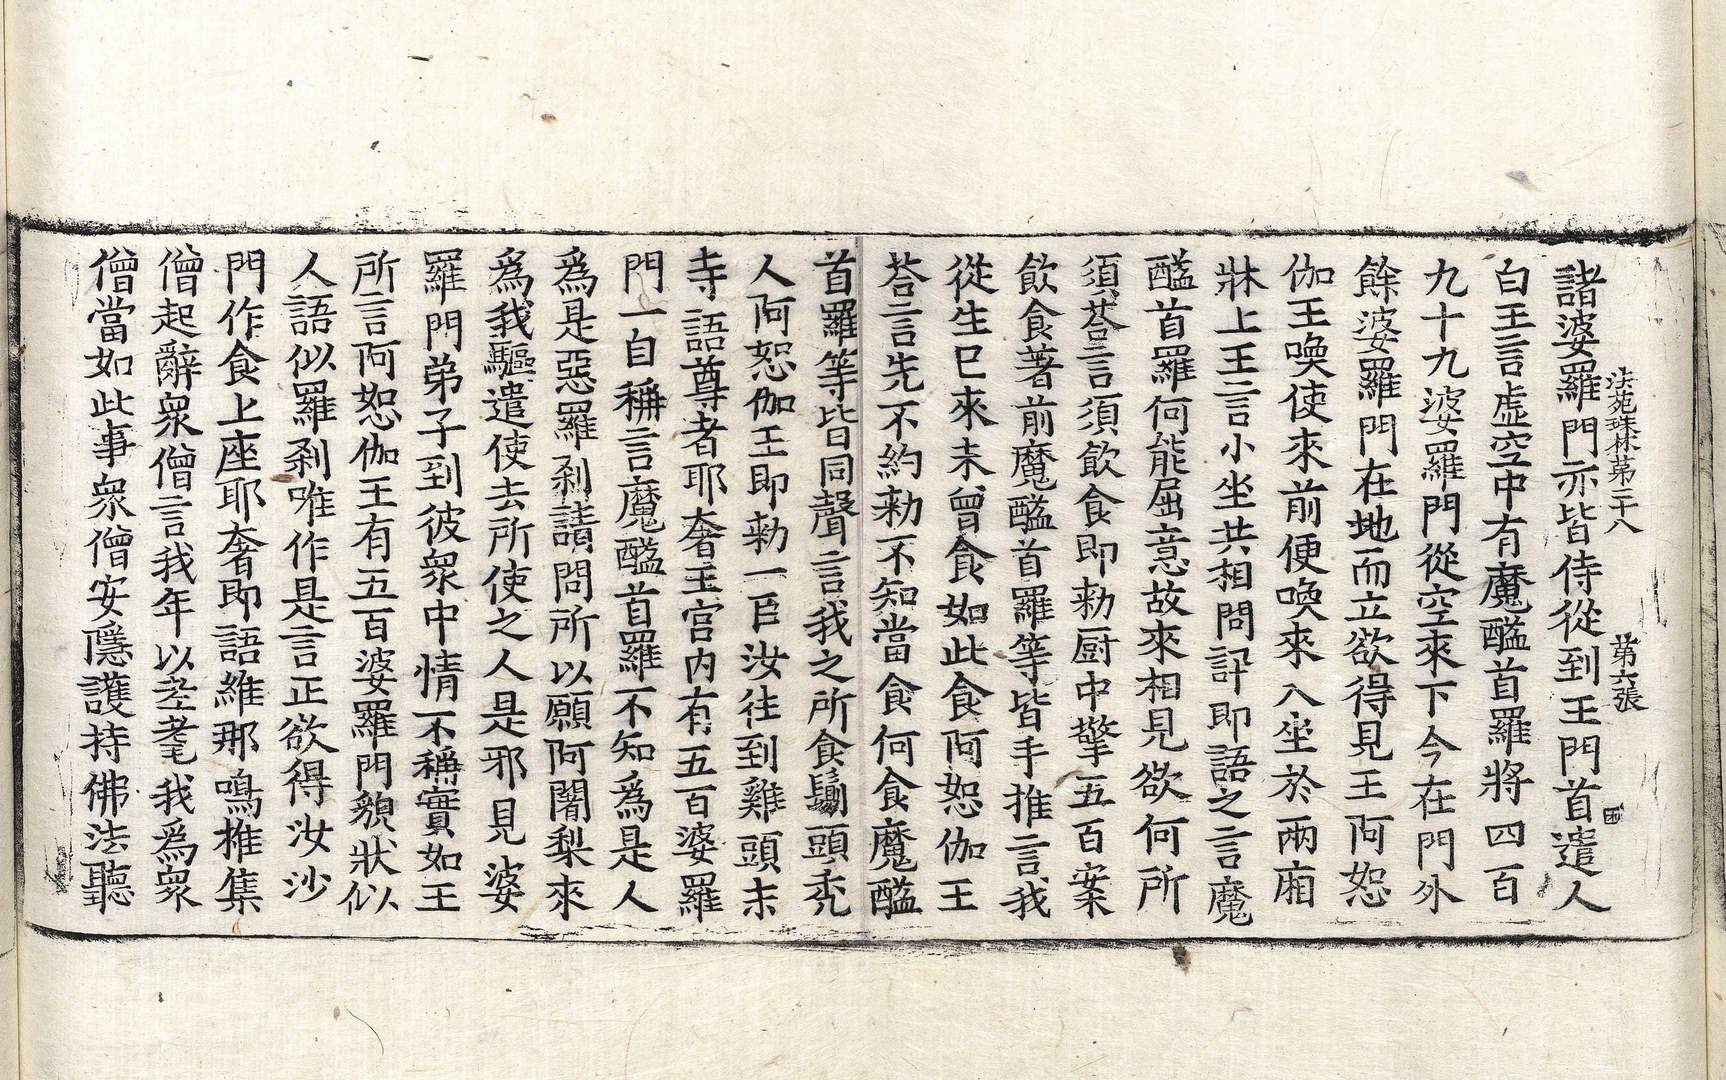 法苑珠林第二十八　第六張　囷
諸婆羅門亦皆侍從到王門首遣人
白王言虛空中有魔醯首羅將四百
九十九婆羅門從空來下今在門外
餘婆羅門在地而立欲得見王阿恕
伽王喚使來前便喚來入坐於兩廂
牀上王言小坐共相問訊即語之言魔
醯首羅何能屈意故來相見欲何所
須荅言須飲食即勑厨中擎五百案
飲食著前魔醯首羅等皆手推言我
從生已來未曾食如此食阿恕伽王
荅言先不約勑不知當食何食魔醯
首羅等皆同聲言我之所食鬀頭禿
人阿恕伽王即勑一臣汝往到雞頭末
寺語尊者耶奢王宮內有五百婆羅
門一自稱言魔醯首羅不知為是人
為是惡羅剎請問所以願阿闍梨來
為我驅遣使去所使之人是邪見婆
羅門弟子到彼衆中情不稱實如王
所言阿恕伽王有五百婆羅門貌狀似
人語似羅剎唯作是言正欲得汝沙
門作食上座耶奢即語維那鳴椎集
僧起辭衆僧言我年以老耄我為衆
僧當如此事衆僧安隱護持佛法聽